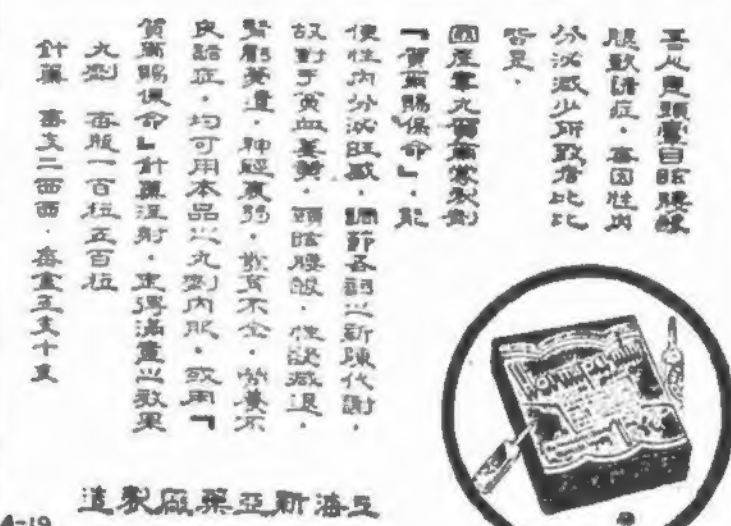 吾人患頭暈目眩腰酸
腿軟諸症・每因性內
分泌減少所致者比比
皆是・
國產睾丸賀爾蒙製劑
『賀爾賜保命』・能
使性內分泌旺盛・調節各調以新陳代謝・
故對于貧血萎弱・頭眩腰酸・性慾減退・
腎虧夢遺・神經衰弱・發育不全・營養不
良諸症・均可用本品以丸劑內服・或用『
賀爾賜保命』針藥注射・定得滿意以效果
丸劑 每瓶一百粒五百粒
針藥 每支二西西・每盒五支十支
Hormspermin
上海新亞藥廠製造
A-19